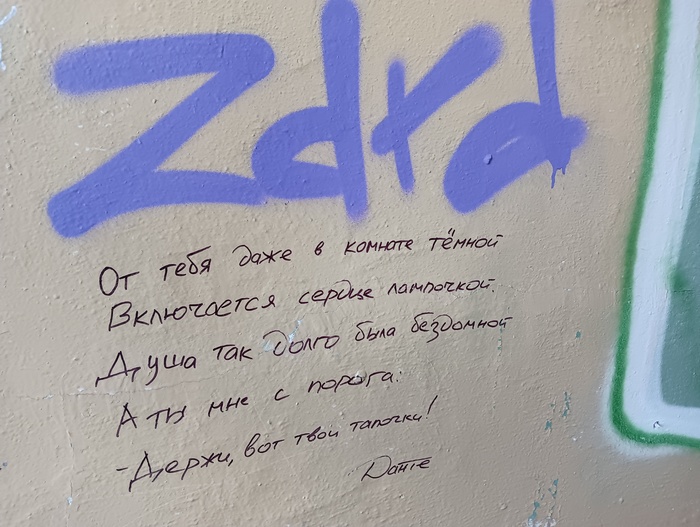 zdrd
От тебя даже в комнате тёмной
Включается сердце лампочкой.
Душа так долго была бездомной
А ты мне с порога:
-Держи, вот твои тапочки!
Данте